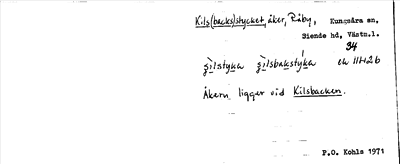 Kils(backs)stycket, åker, Råby, Kungsåra sn,
Siende hd, Västm.l.
34
ek 11H2b
Åkern ligger vid Kilsbacken.
P.O. Kohls 1971